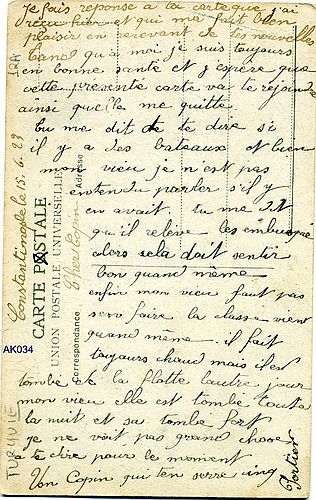 Je fais reponse a ta carte que j'ai
reçu hier et qui ma fait bien
plaisir en recevant de tes nouvelles
cand qu'a moi je suis toujours
en bonne santé et j'espère que
cette presente carte va te rejoindre
ainsi quelle me quitte.
tu me dit de te dire si
il y a des bateaux et bien
mon vieu je n'est pas
entendu parler s'il y
en avait tu me dit
qu'il releve les
alors sela doit sentir
bon quand même
enfin mon vieu faut pas
s'en faire la classe vient
quand meme. il fait
toujours chaud mais il est
tombé de la flotte lautre jour
mon vieu elle est tombé toute
la nuit et sa tombe fort
je ne voit pas grand chose
a te dire pour le moment
Un Copin qui ten serre cinq
Constantinople le 15. 6. 23
Cher Copin
CARTE POSTALE
UNION POSTALE UNIVERSELLE
Correspondance
Adresse
AK034
TURQUIE